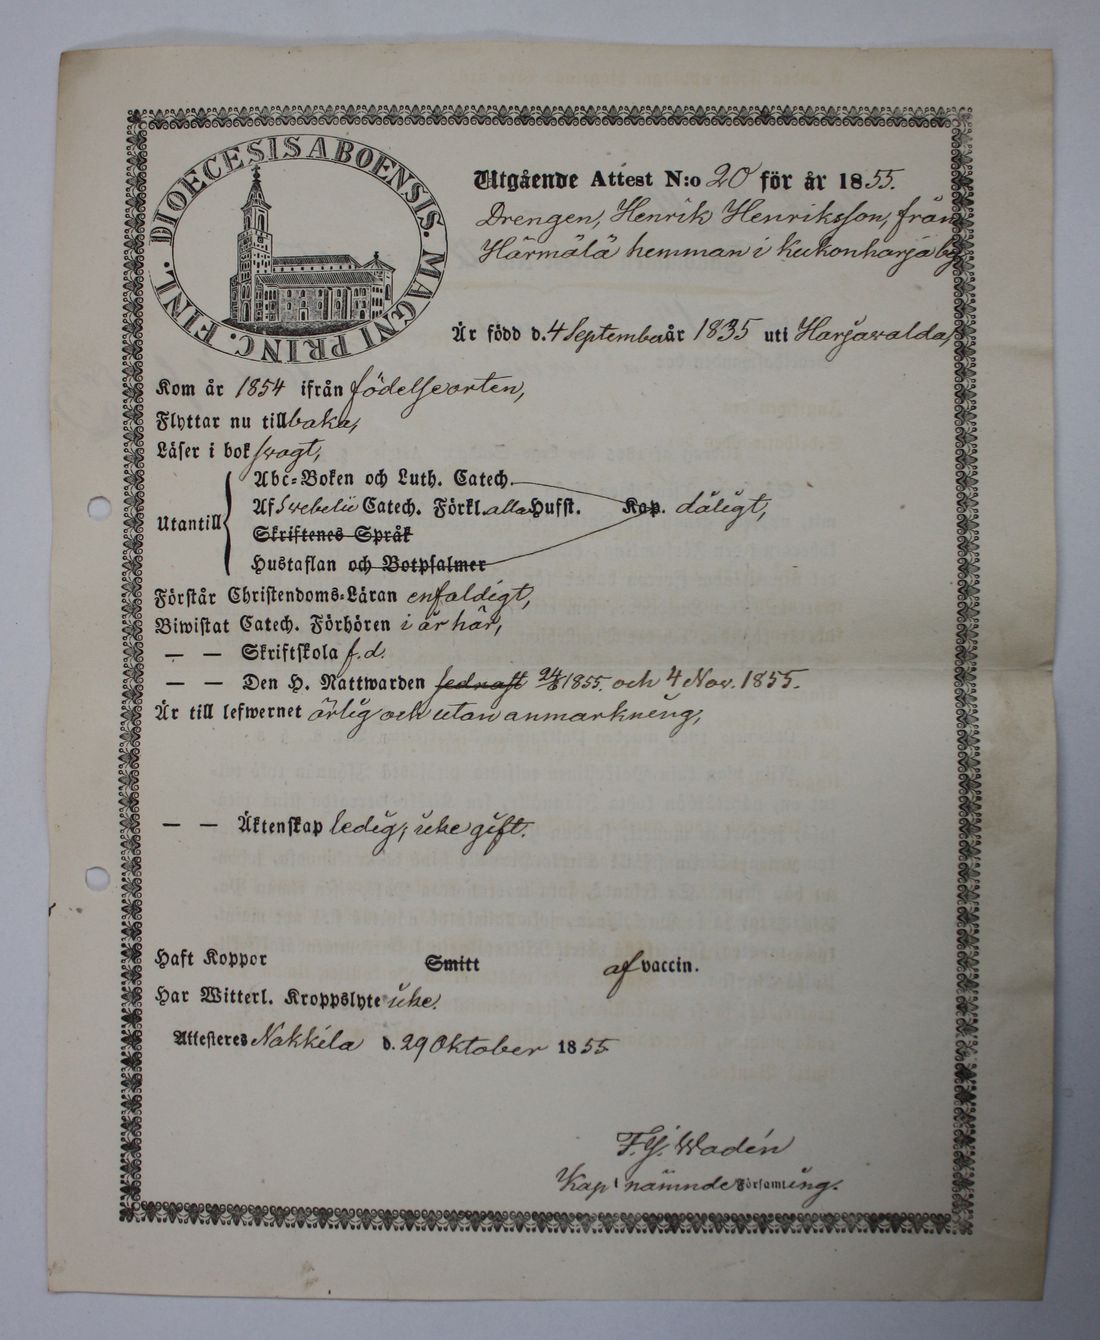 DIOECESIS ABOENSIS. MAGNI PRINC. FINL.
Utgående Attest N:o 20 för år 1855.
Drengen, Henrik Henriksson, från
Härmälä hemman i Kukonharja by,
Är född d. 4 September år 1835 uti Harjawalda,
Kom år 1854 ifrån födelseorten,
Flyttar nu tillbaka,
Läser i bok swagt,
Abc-Boken och Luth. Catech.
Utantill Af Swebelii Catech. Förkl. alla Hufst. Kap. dåligt,
Skriftenes Språk
Hustaflan och Botpsalmer
Förstår Christendoms-Läran enfaldigt,
Biwistat Catech. Förhören i år här,
— — Skriftskola f.d.
— — Den H. Nattwarden sednast 24/6 1855. och 4 Nov. 1855.
Är till lefwernet ärlig och utan anmärkning,
— — Äktenskap ledig, icke gift.
Haft Koppor Smitt af vaccin.
Har Witterl. Kroppslyte icke.
Attesteres Nakkila d. 29 Oktober 1855
F. G. Wadén
Kap. i nämnde Församling.